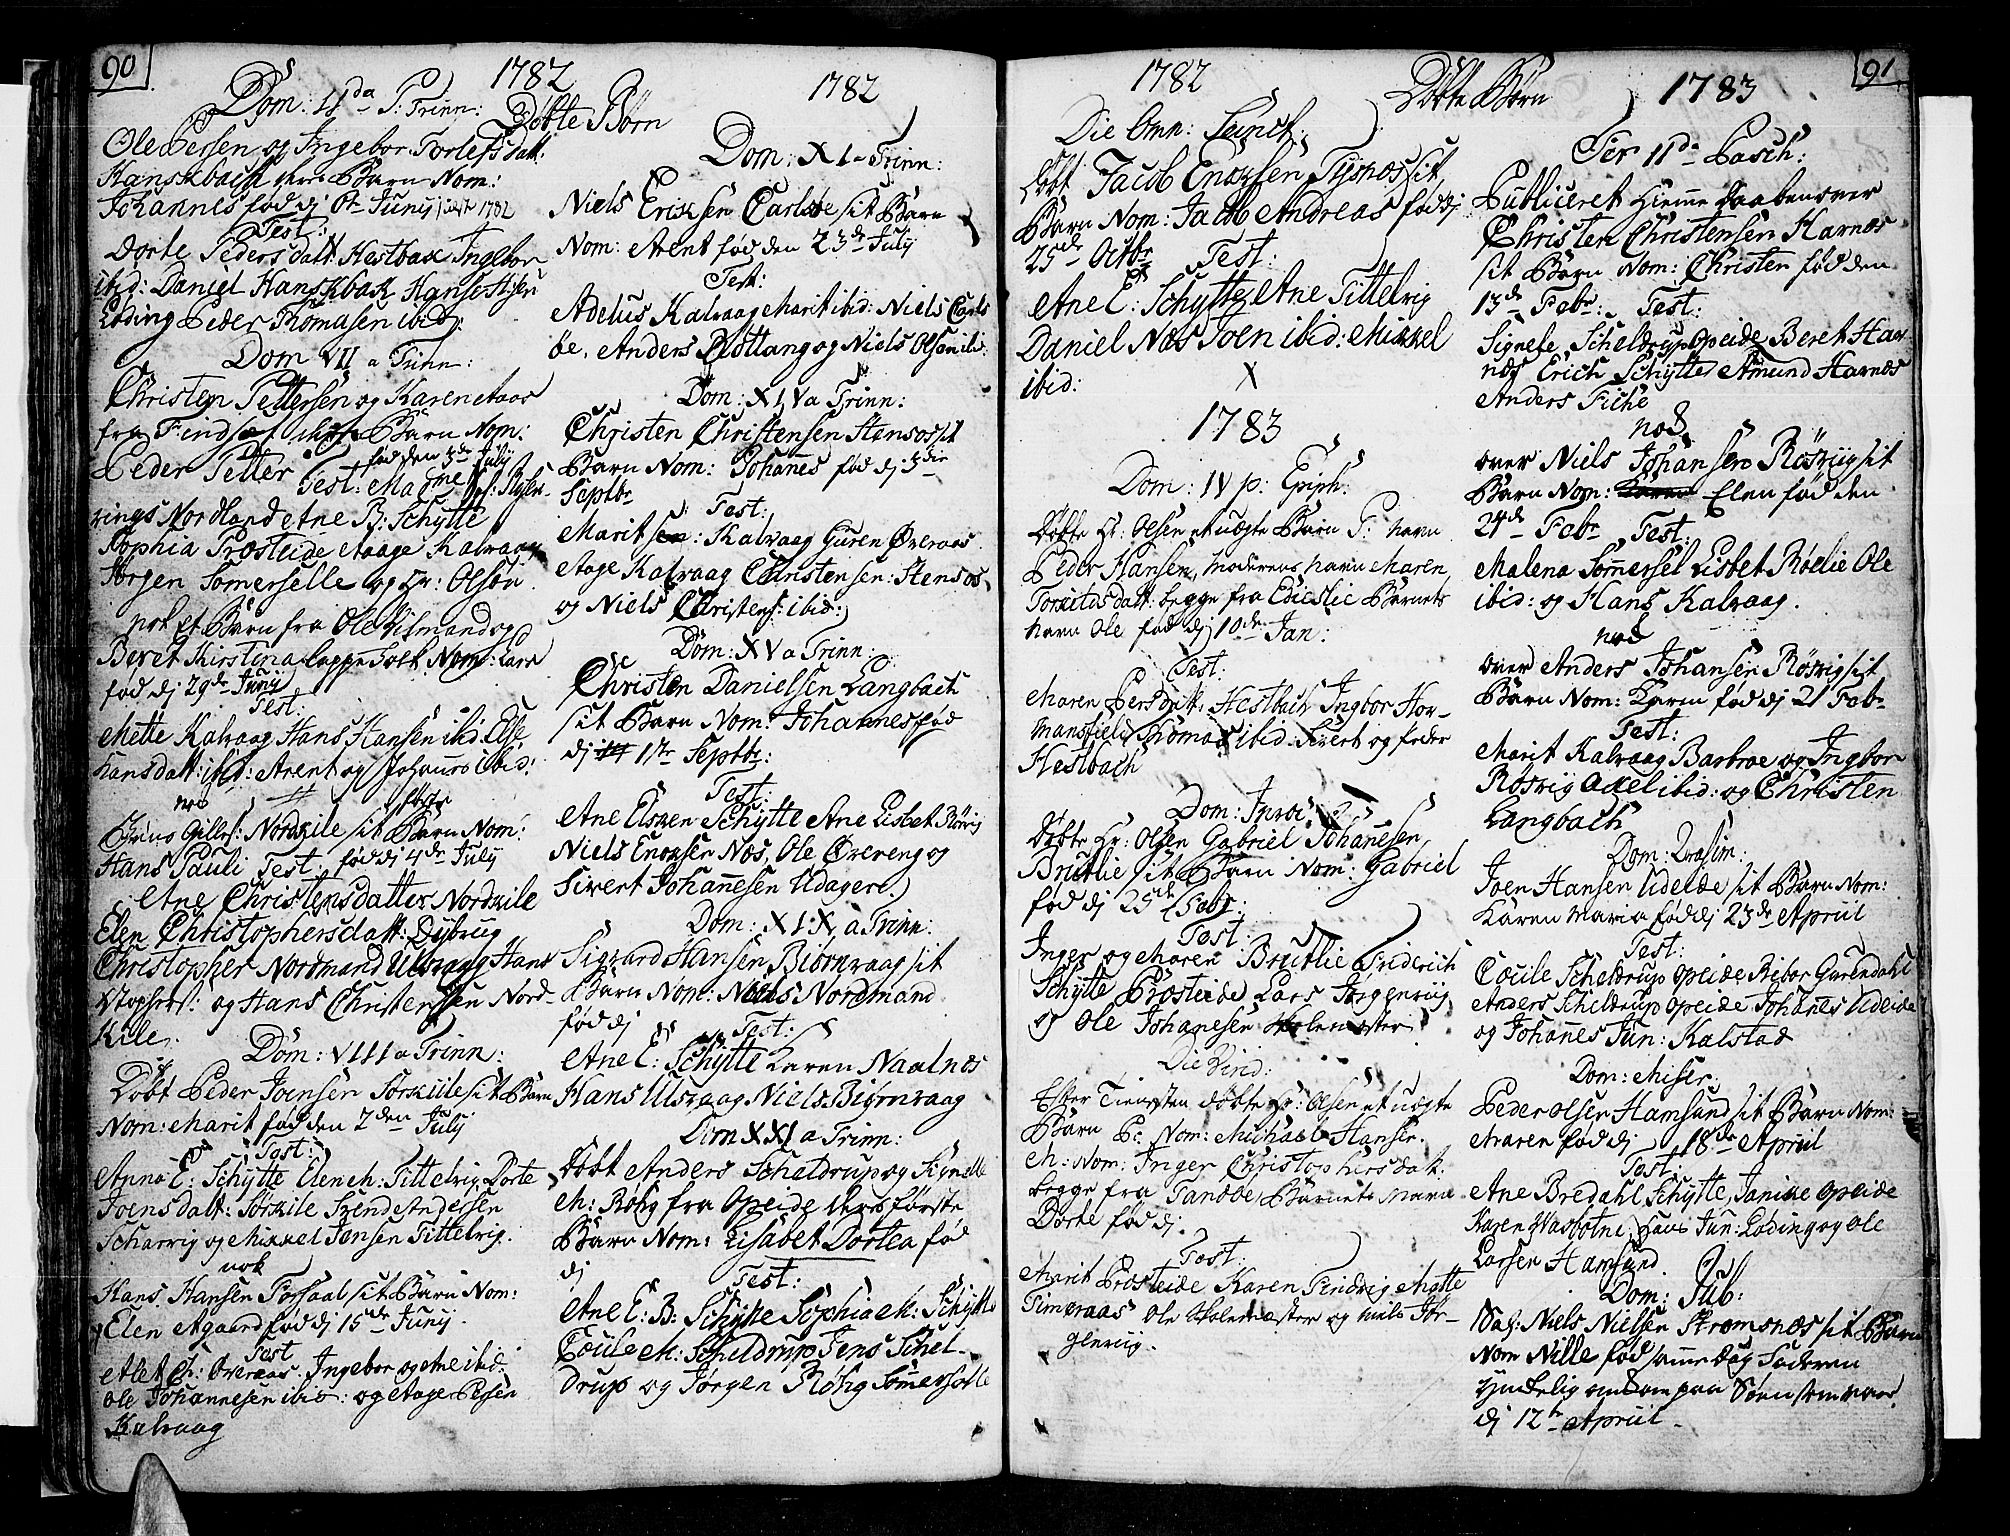 90
1782
Døbte Børn
Dom: 4da P: Trinn:
Ole Persen og Ingebor Torlefsdatt:
Hanskbach Barn Nom:
Johannes fød dj Juny 1782
Test:
Dorte Pedersdatt Hestbak Ingebor
ibid: Daniel Hanskbak Hans
Løding Peder Thomasen ibid:
Dom VII a Trinn:
Christen Pettersen og Karen Aaas
fra Findsæt Barn Nom:
Peder Petter fød den 3de July
Test: Madme
rings Nordland Ane B: Schytte
Sophia Prosteide Aage Kalvaag
Jørgen Somerselle og Hr: Olsen
nok Et Barn fra Ole Nilsmand og
Beret Kirstina Lappe Folk Nom: Lars
fød dj 29de Junij
Test:
Mette Kalvaag Hans Hansen ibid: Else
Hansdatt: ibid: Arent og Johannes ibid:
nok
Gillets: Nordkile sit Barn Nom:
Hans Pauli Test: fød dj 4de July
Ane Christensdatter Nordkile
Elen Christophersdatt: Dybvig
Christopher Nordmand Ulsvaag Hans
og Hans Christensen Nord-
kile.
Dom: VIII a Trinn:
Døbt Peder Joensen Sørkiile sit Barn
Nom: Marit fød den 2den July
Test:
Anna E: Schytte Elen M: Tittelvig Dorte
Joensdatt: Sørkile Svend Andersen
Scharvig og Mikkel Jensen Tittelvig.
nok
Hans Hansen Fossaal sit Barn Nom:
Elen Agaard fød dj 15de Junij
Test
Alet Ch: Øveraas Ingebor og Ane ibid:
Ole Johannesen ibid: og Aage Persen
Kalvaag
1782
Dom: XI a Trinn:
Niels Eriksen Carlsøe sit Barn
Nom: Arent fød den 23de July
Test:
Adelus Kalvaag Marit ibid: Niels Carls
øe, Anders Rottang og Niels Olsen ibid:
Dom: XIV a Trinn:
Christen Christensen Stensos sit
Barn Nom: Johannes fød dj 3die
Septbr
Test:
Marit : Kalvaag Guren Øveraas
Aage Kalvaag Christensen: Stensos
og Niels Christens: ibid:
Dom: XV a Trinn:
Christen Danielsen Langbach
sit Barn Nom: Johannes fød
dj 17de Septbr:
Test:
Ane Elsken Schytte Ane Lisbet Rørvig
Niels Enoksen Næs, Ole Øvereng og
Sivert Johannesen Udager
Dom: XIX a Trinn:
Sigvard Hansen Biørnvaag sit
Barn Nom: Niels Nordmand
fød dj
Test:
Ane E: Schytte Karen Naalnæs
Hans Ulsvaag Niels Biørnvaag
Dom XXI a Trinn:
Døbt Anders Scheldrup og Signelle
M: Røhg fra Opeide Deres første
Barn Nom: Lisabet Dortea fød
dj
Test:
Ane E: B: Schytte Sophia M: Schytte
Cecile M: Scheldrup Jens Schel-
drup og Jørgen Røhg Sømerselle
1782
Døbte Børn
Die Omn: Sanct:
Døbt Jacob Enoksen Tysnæs sit
Barn Nom: Jacob Andreas fød dj
25de Octbr
Test:
Ane E: Schytte, Ane Tittelvig
Daniel Næs Joen ibid: Mikkel
ibid:
X
1783
Dom: IV p: Epiph:
Døbte Hr: Olsen et uægte Barn P: navn
Peder Hansen, Moderens navn Maren
Torsteesdatt: begge fra Barnets
navn Ole fød dj 10de Jan:
Test:
Maren Persdatt: Hestbach Ingbor Hor-
mansfield Thomas ibid: Sivert og Peder
Hestbach
Dom: Invoc:
Døbte Hr: Olsen Gabriel Johannesen
Brutlie sit Barn Nom: Gabriel
fød dj 25de Febr:
Test:
Inger og Maren Brutlie Friderich
Schytte Prosteide Lars Jørgenviig
og Ole Johanesen Skolemester
Die Virid:
Efter Tienesten døbte Hr: Olsen et uægte
Barn P: Nom: Michael Hansen.
M: Nom: Inger Christophersdatt.
begge fra Tandøe, Barnets Navn
Dorte fød dj.
Test:
Marit Prosteide Karen Findvig Mette
Timeraas Ole Skolemester og Niels Jør-
genviig.
91
1783
Fer IIda Pasch:
Publiceret Hieme Daaben over
Christen Christensen Harnæs
sit Barn Nom: Christen fød den
13de Febr: Test:
Signele Scheldrup Opeide, Beret Har-
næs Erich Schytte Amund Harnæs
Anders Fiche
nok
over Niels Johansen Rørviig sit
Barn Nom: Elen fød den
24de Febr Test:
Malena Sømmersel Lisbet Røelie Ole
ibid: og Hans Kalvaag.
nok
over Anders Johansen Rørvig sit
Barn Nom: Karen fød dj 21 Febr
Test:
Marit Kalvaag Barbroe og Ingbor
Rørvig Axel ibid: og Christen
Langbach
Dom: Qvasim:
Joen Hansen Udeide sit Barn Nom:
Karen Maria fød dj 23de Apriil
Test:
Cecile Scheldrup Opeide Rebor Gurendahl
Anders Scheldrup Opeide Johanes Udeide
og Johannes Jun: Kalstad
Dom: Miser:
Peder Olsen Hamsund sit Barn Nom:
Maren fød dj 18de Apriil
Test:
Ane Bredahl Schytte, Janike Opeide
Karen Vasbotne Hans Jun: Løding og Ole
Larsen Hamsund.
Dom: Jub:
Sal: Niels Nielsen Strømsnæs sit Barn
Nom Nille fød samme dag Faderen
ynkelig omkom paa Søen som var
dj 12te Apriil.